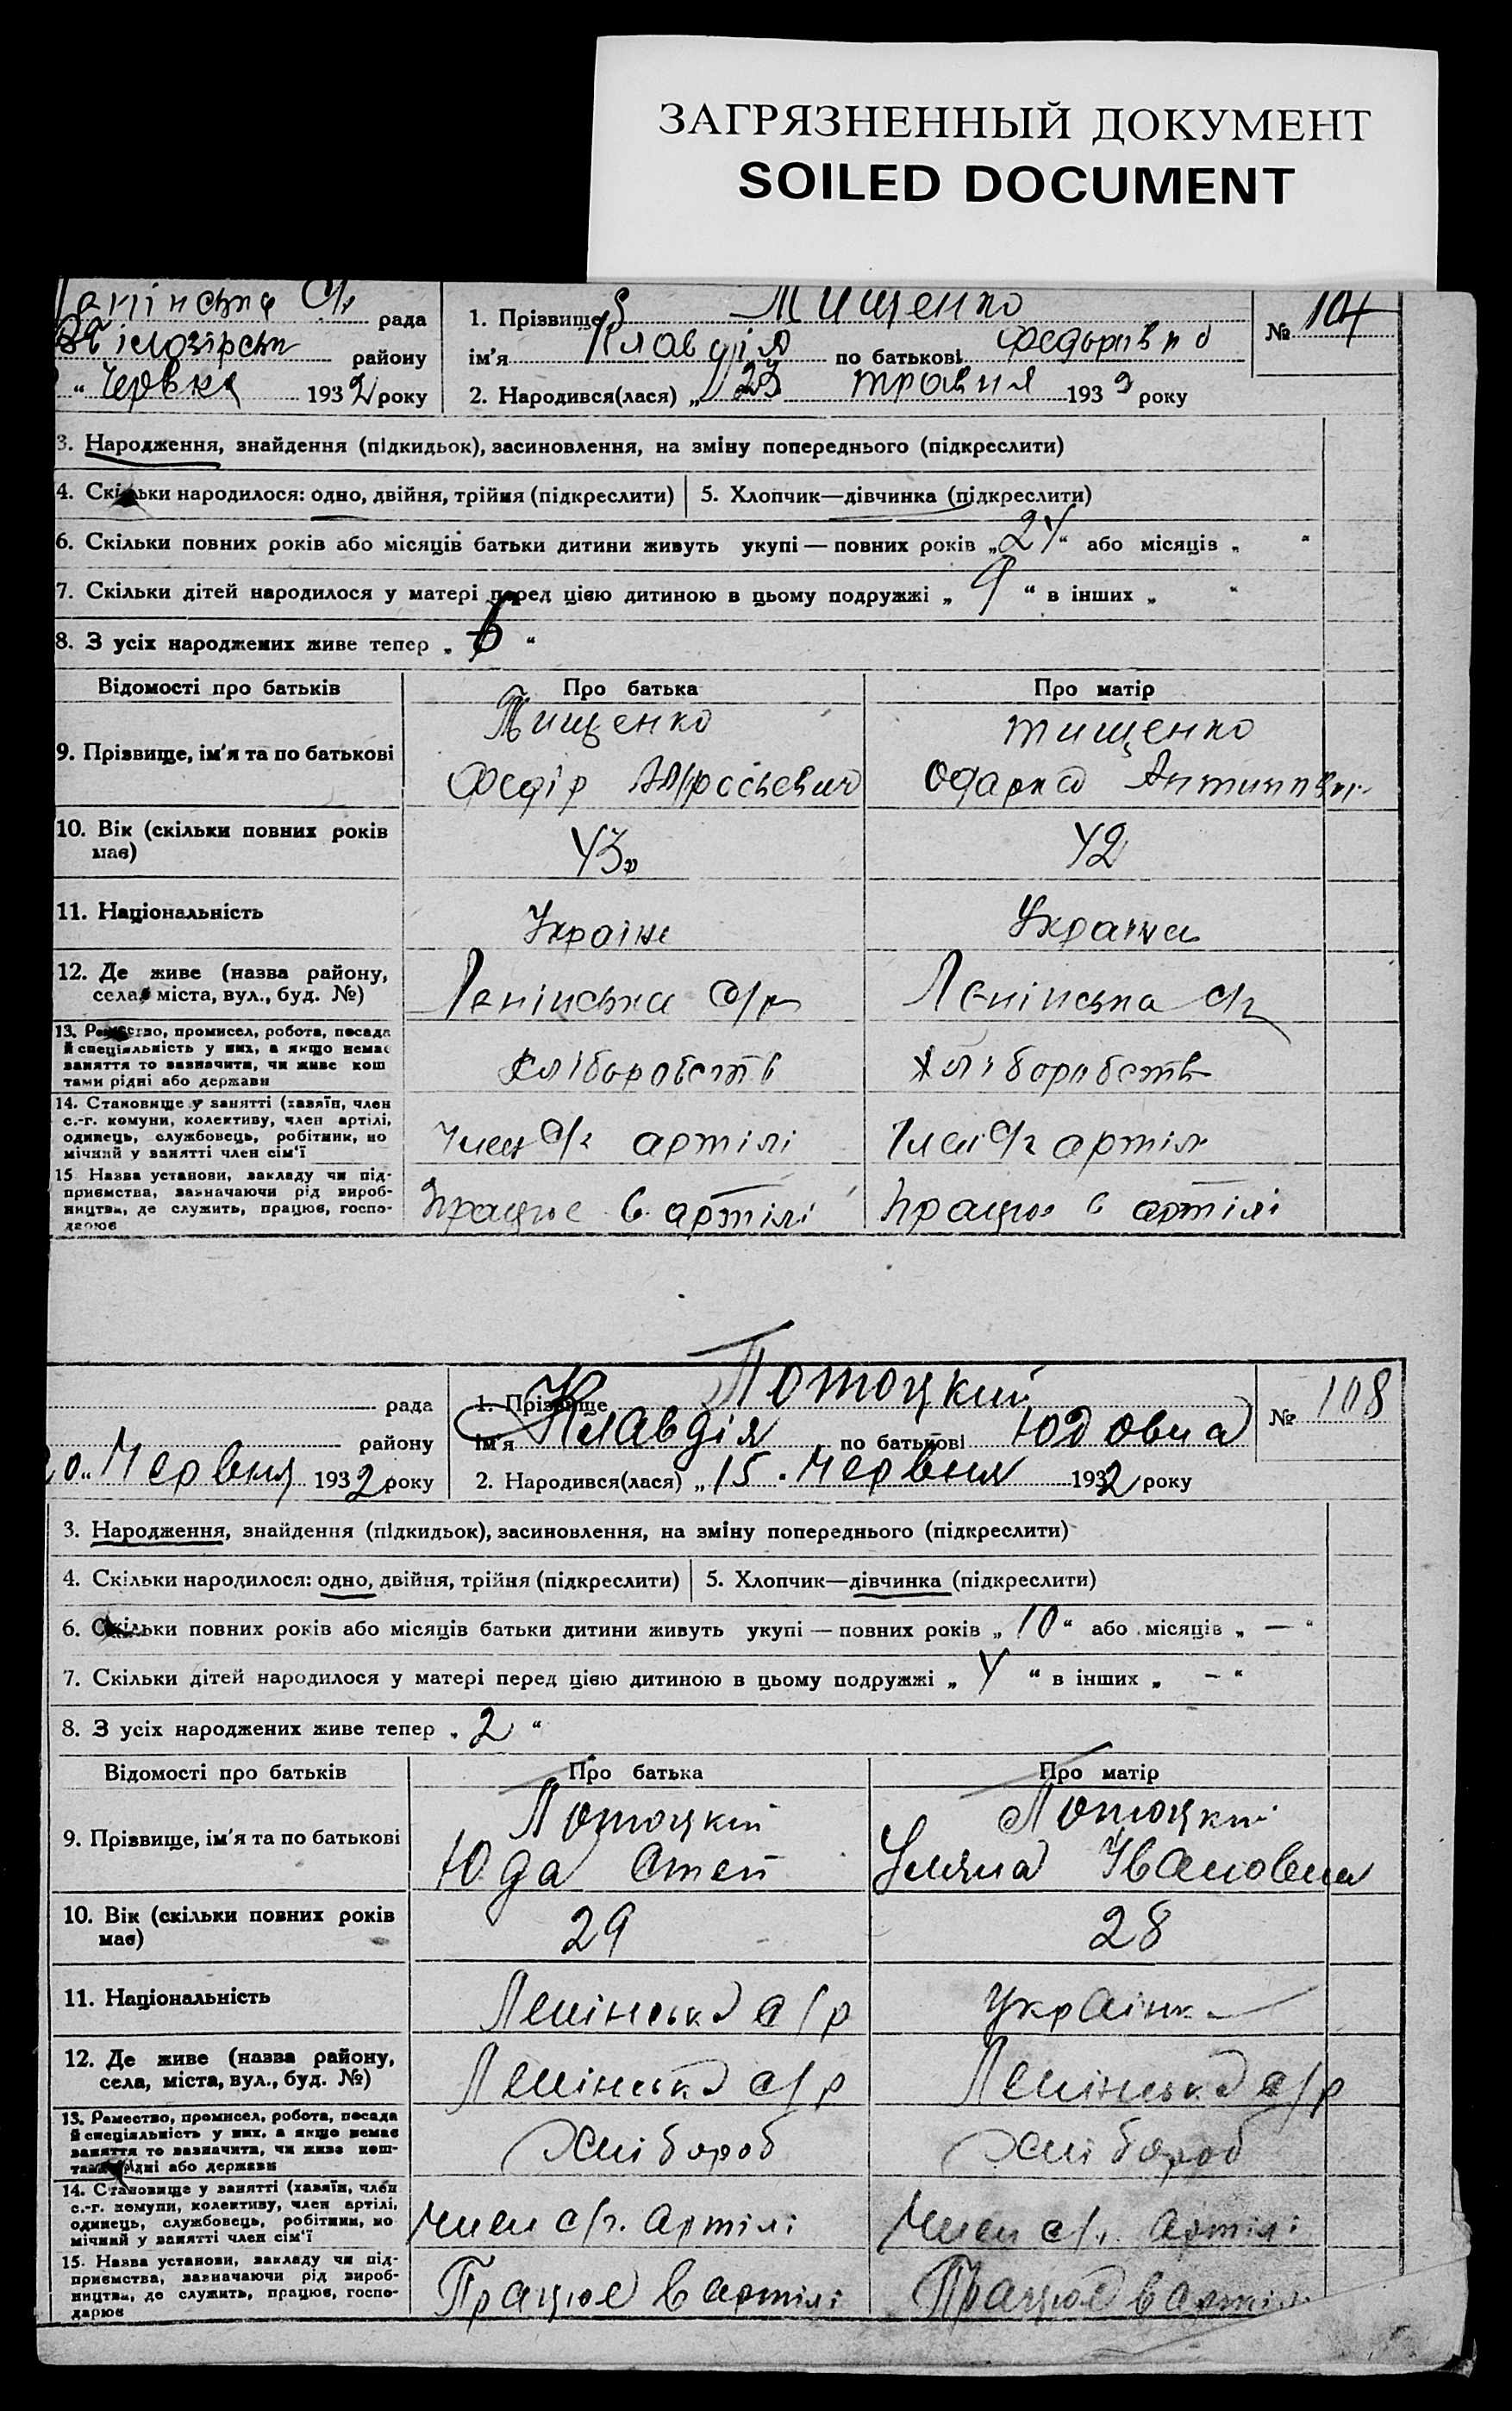 ЗАГРЯЗНЕННЫЙ ДОКУМЕНТ
SOILED DOCUMENT
рада
району
„ Червня 1932 року
1. Прізвище Тищенко
ім'я Клавдія по батькові Федорівна
2. Народився(лася) „23 травня 1932 року
№ 107
3. Народження, знайдення (підкидьок), засиновлення, на зміну попереднього (підкреслити)
4. Скільки народилося: одно, двійня, трійня (підкреслити) 5. Хлопчик—дівчинка (підкреслити)
6. Скільки повних років або місяців батьки дитини живуть укупі — повних років „24“ або місяців „ “
7. Скільки дітей народилося у матері перед цією дитиною в цьому подружжі „ 9 “ в інших „ “
8. З усіх народжених живе тепер „ 6 “
Відомості про батьків Про батька Про матір
9. Прізвище, ім'я та по батькові
Тищенко
Федір
тищенко
Одарка
10. Вік (скільки повних років
має)
43 42
11. Національність
12. Де живе (назва району,
села, міста, вул., буд. №)
Ленінська с/р Ленінська
13. Ремество, промисел, робота, посада
й спеціяльність у них, а якщо немає
заняття то зазначити, чи живе кош
тами рідні або держави
хліборобств хліборобств
14. Становище у занятті (хазяїн, член
с.-г. комуни, колективу, член артілі,
одинець, службовець, робітник, по
мічний у занятті член сім'ї
член с/г артілі член с/г артіл
15 Назва установи, закладу чи під-
приємства, зазначаючи рід вироб-
ництва, де служить, працює, госпо-
дарює
працює в артілі працює в артілі
рада
району
20 „ Червня 1932 року
1. Прізвище Потоцкий
ім'я Клавдія по батькові Юдовна
2. Народився(лася) „ 15 . Червня 1932 року
№ 108
3. Народження, знайдення (підкидьок), засиновлення, на зміну попереднього (підкреслити)
4. Скільки народилося: одно, двійня, трійня (підкреслити) 5. Хлопчик—дівчинка (підкреслити)
6. Скільки повних років або місяців батьки дитини живуть укупі — повних років „ 10 “ або місяців „ — “
7. Скільки дітей народилося у матері перед цією дитиною в цьому подружжі „ 4 “ в інших „ — “
8. З усіх народжених живе тепер „ 2 “
Відомості про батьків Про батька Про матір
9. Прізвище, ім'я та по батькові
Потоцкий
Юда Степ
Потоцкий
Уляна Івановна
10. Вік (скільки повних років
має)
29 28
11. Національність
Ленінська с/р Українка
12. Де живе (назва району,
села, міста, вул., буд. №)
Ленінська с/р Ленінська с/р
13. Ремество, промисел, робота, посада
й спеціяльність у них, а якщо немає
заняття то зазначити, чи живе кош-
тами рідні або держави
Хлібороб Хлібороб
14. Становище у занятті (хазяїн, член
с.-г. комуни, колективу, член артілі,
одинець, службовець, робітник, по
мічний у занятті член сім'ї
Член с/г. артілі Член с/г. артілі
15. Назва установи, закладу чи під-
приємства, зазначаючи рід вироб-
ництва, де служить, працює, госпо-
дарює
Працює в артілі Працює в артілі